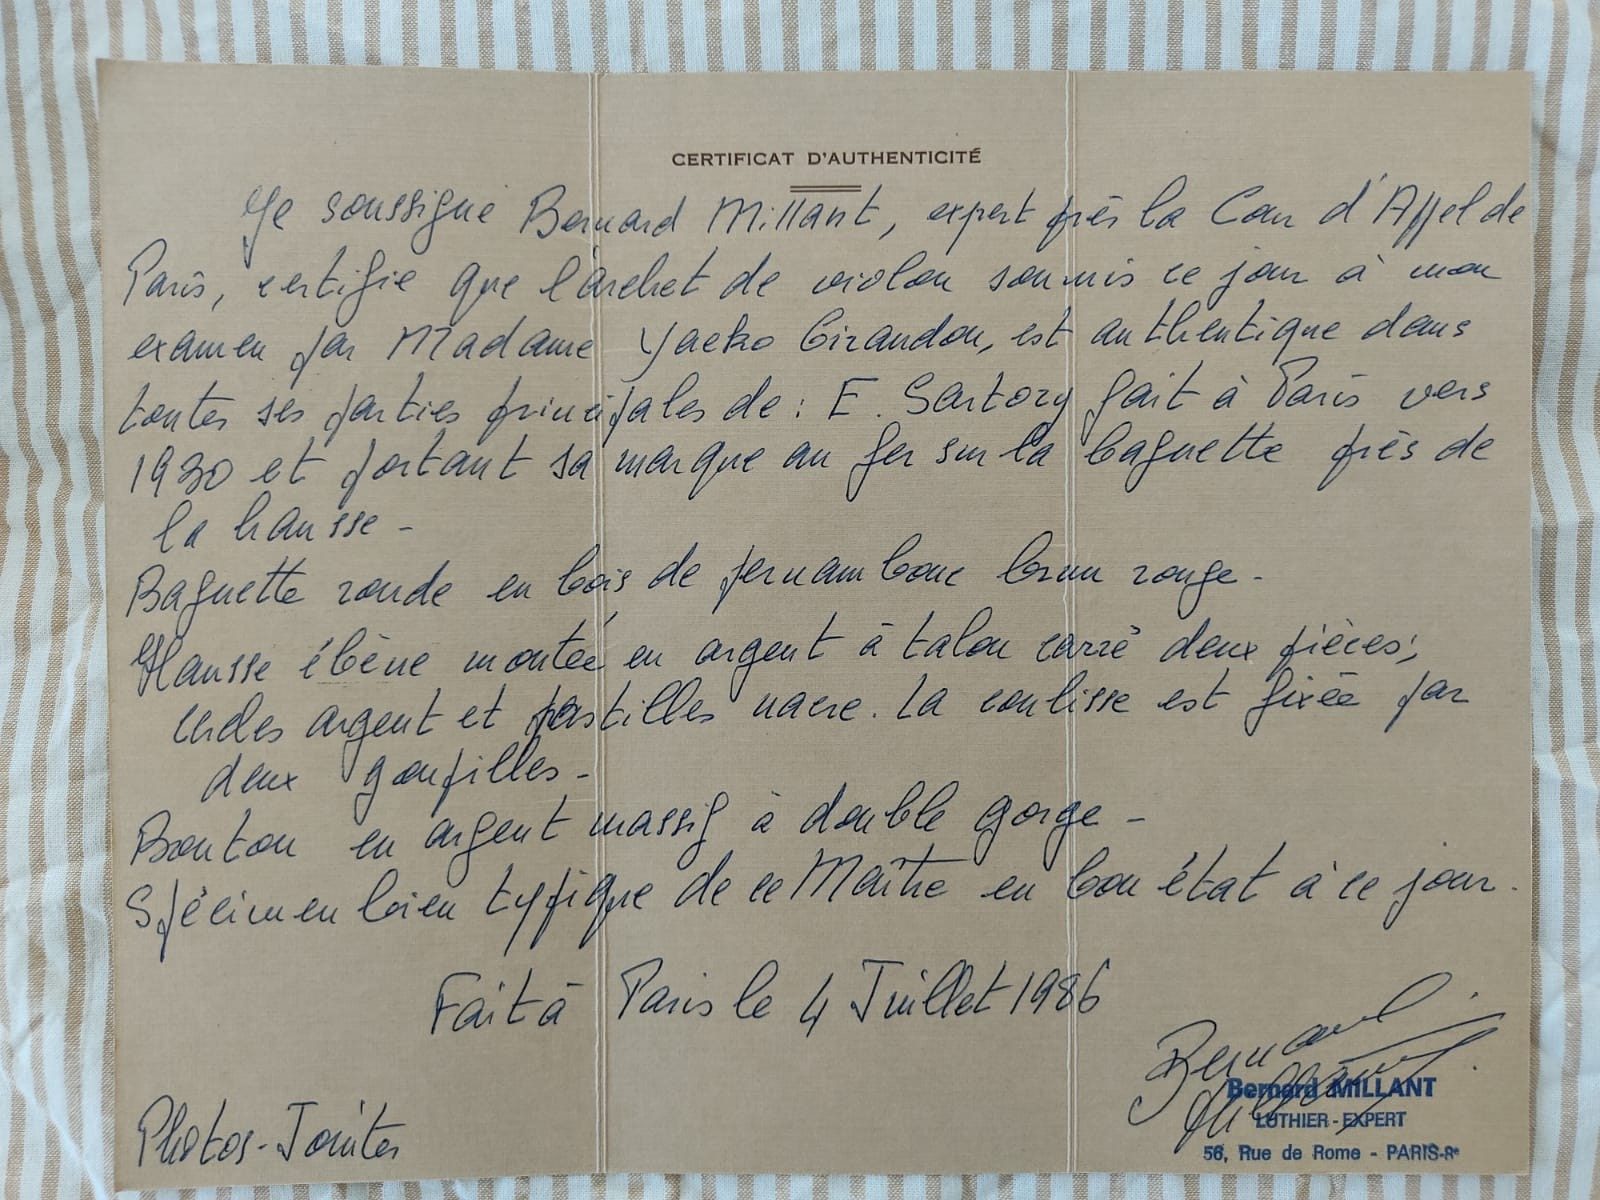 CERTIFICAT D'AUTHENTICITÉ
Je soussigné Bernard Millant, expert près la Cour d'Appel de
Paris, certifie que l'archet de violon soumis ce jour à mon
examen par Madame Yaeko Giraudon, est authentique dans
toutes ses parties principales de : E. Sartory fait à Paris vers
1930 et portant sa marque au fer sur la baguette près de
la hausse -
Baguette ronde en bois de pernambouc brun rouge -
Hausse ébène montée en argent à talon carré deux pièces;
argent et pastilles nacre. La coulisse est fixée par
deux goupilles -
Bouton en argent massif à double gorge -
Spécimen bien typique de ce Maître en bon état à ce jour.
Fait à Paris le 4 Juillet 1986
Bernard Millant
Bernard MILLANT
LUTHIER - EXPERT
56, Rue de Rome - PARIS-8e
Photos - Jointes